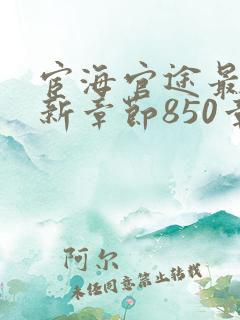 宦海官途最
新章节850章
阿尔
未经同意禁止转载